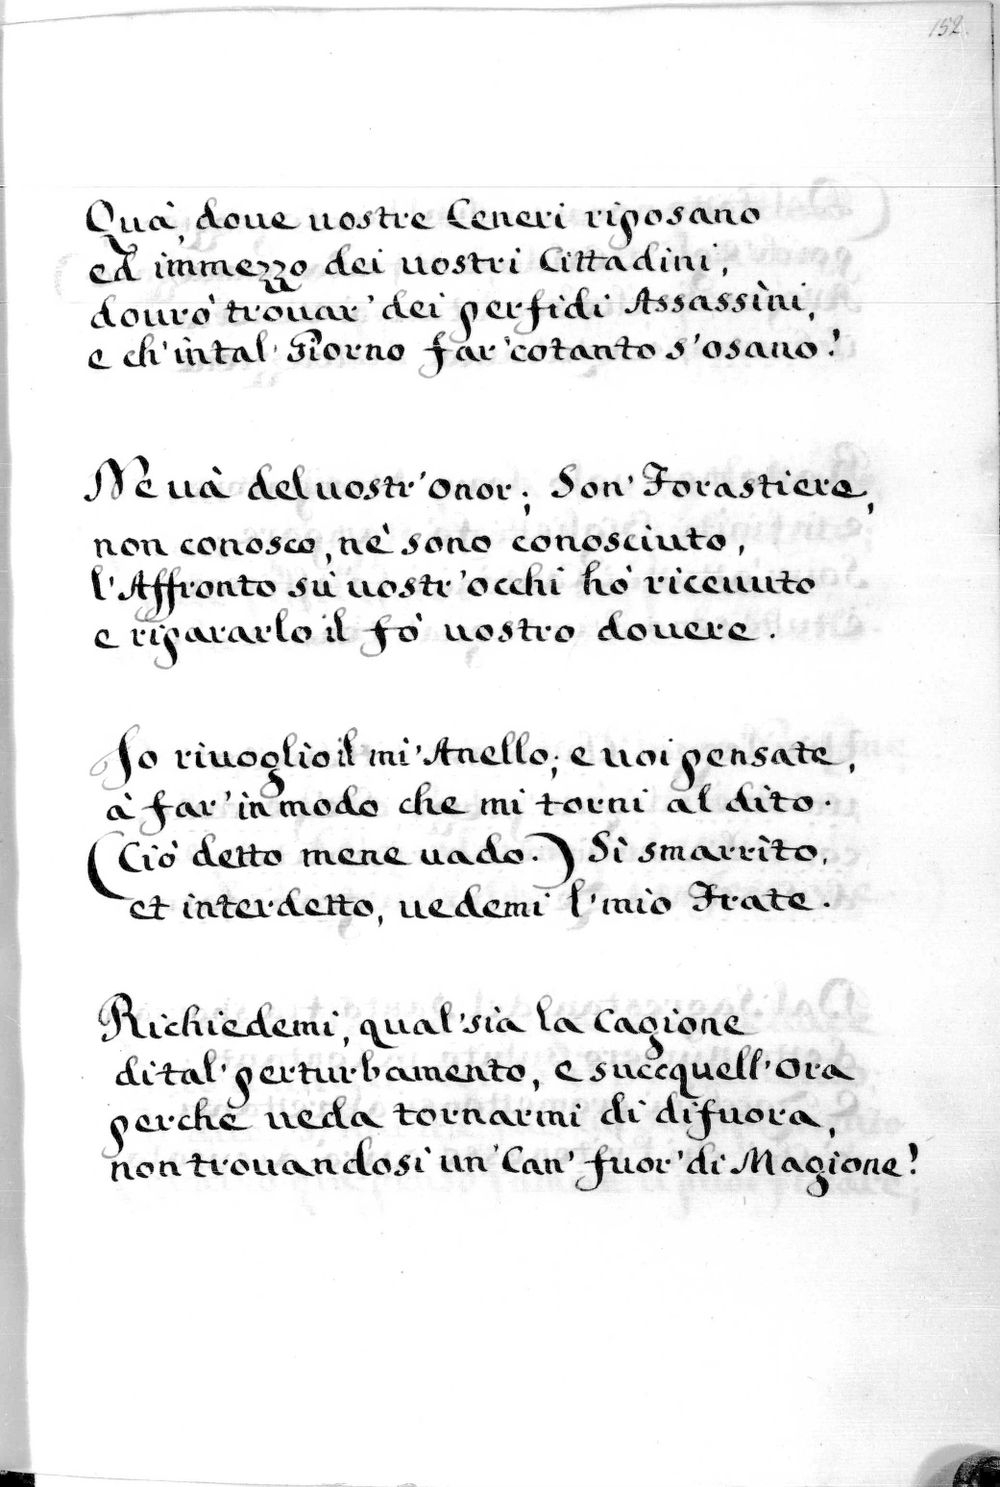 152.
Quà, doue uostre Ceneri riposano
ed immezzo dei uostri Cittadini,
dourò trouar' dei perfidi Assassini,
e ch'intal' Giorno far'cotanto s'osano!
Ne uà del uostr'onor; Son' Forastiere,
non conosco, nè sono conosciuto,
l'Affronto sù uostr'occhi hò riceuuto
e ripararlo il fò uostro douere.
Io riuoglio il mi'Anello; e uoi pensate,
à far'in modo che mi torni al dito.
(Ciò detto mene uado.) Sì smarrito,
et interdetto, uedemi l'mio Frate.
Richiedemi, qual'sia la Cagione
di tal'perturbamento, e succquell'ora
perchè ueda tornarmi di difuora,
non trouandosi un'Can' fuor'di Magione!